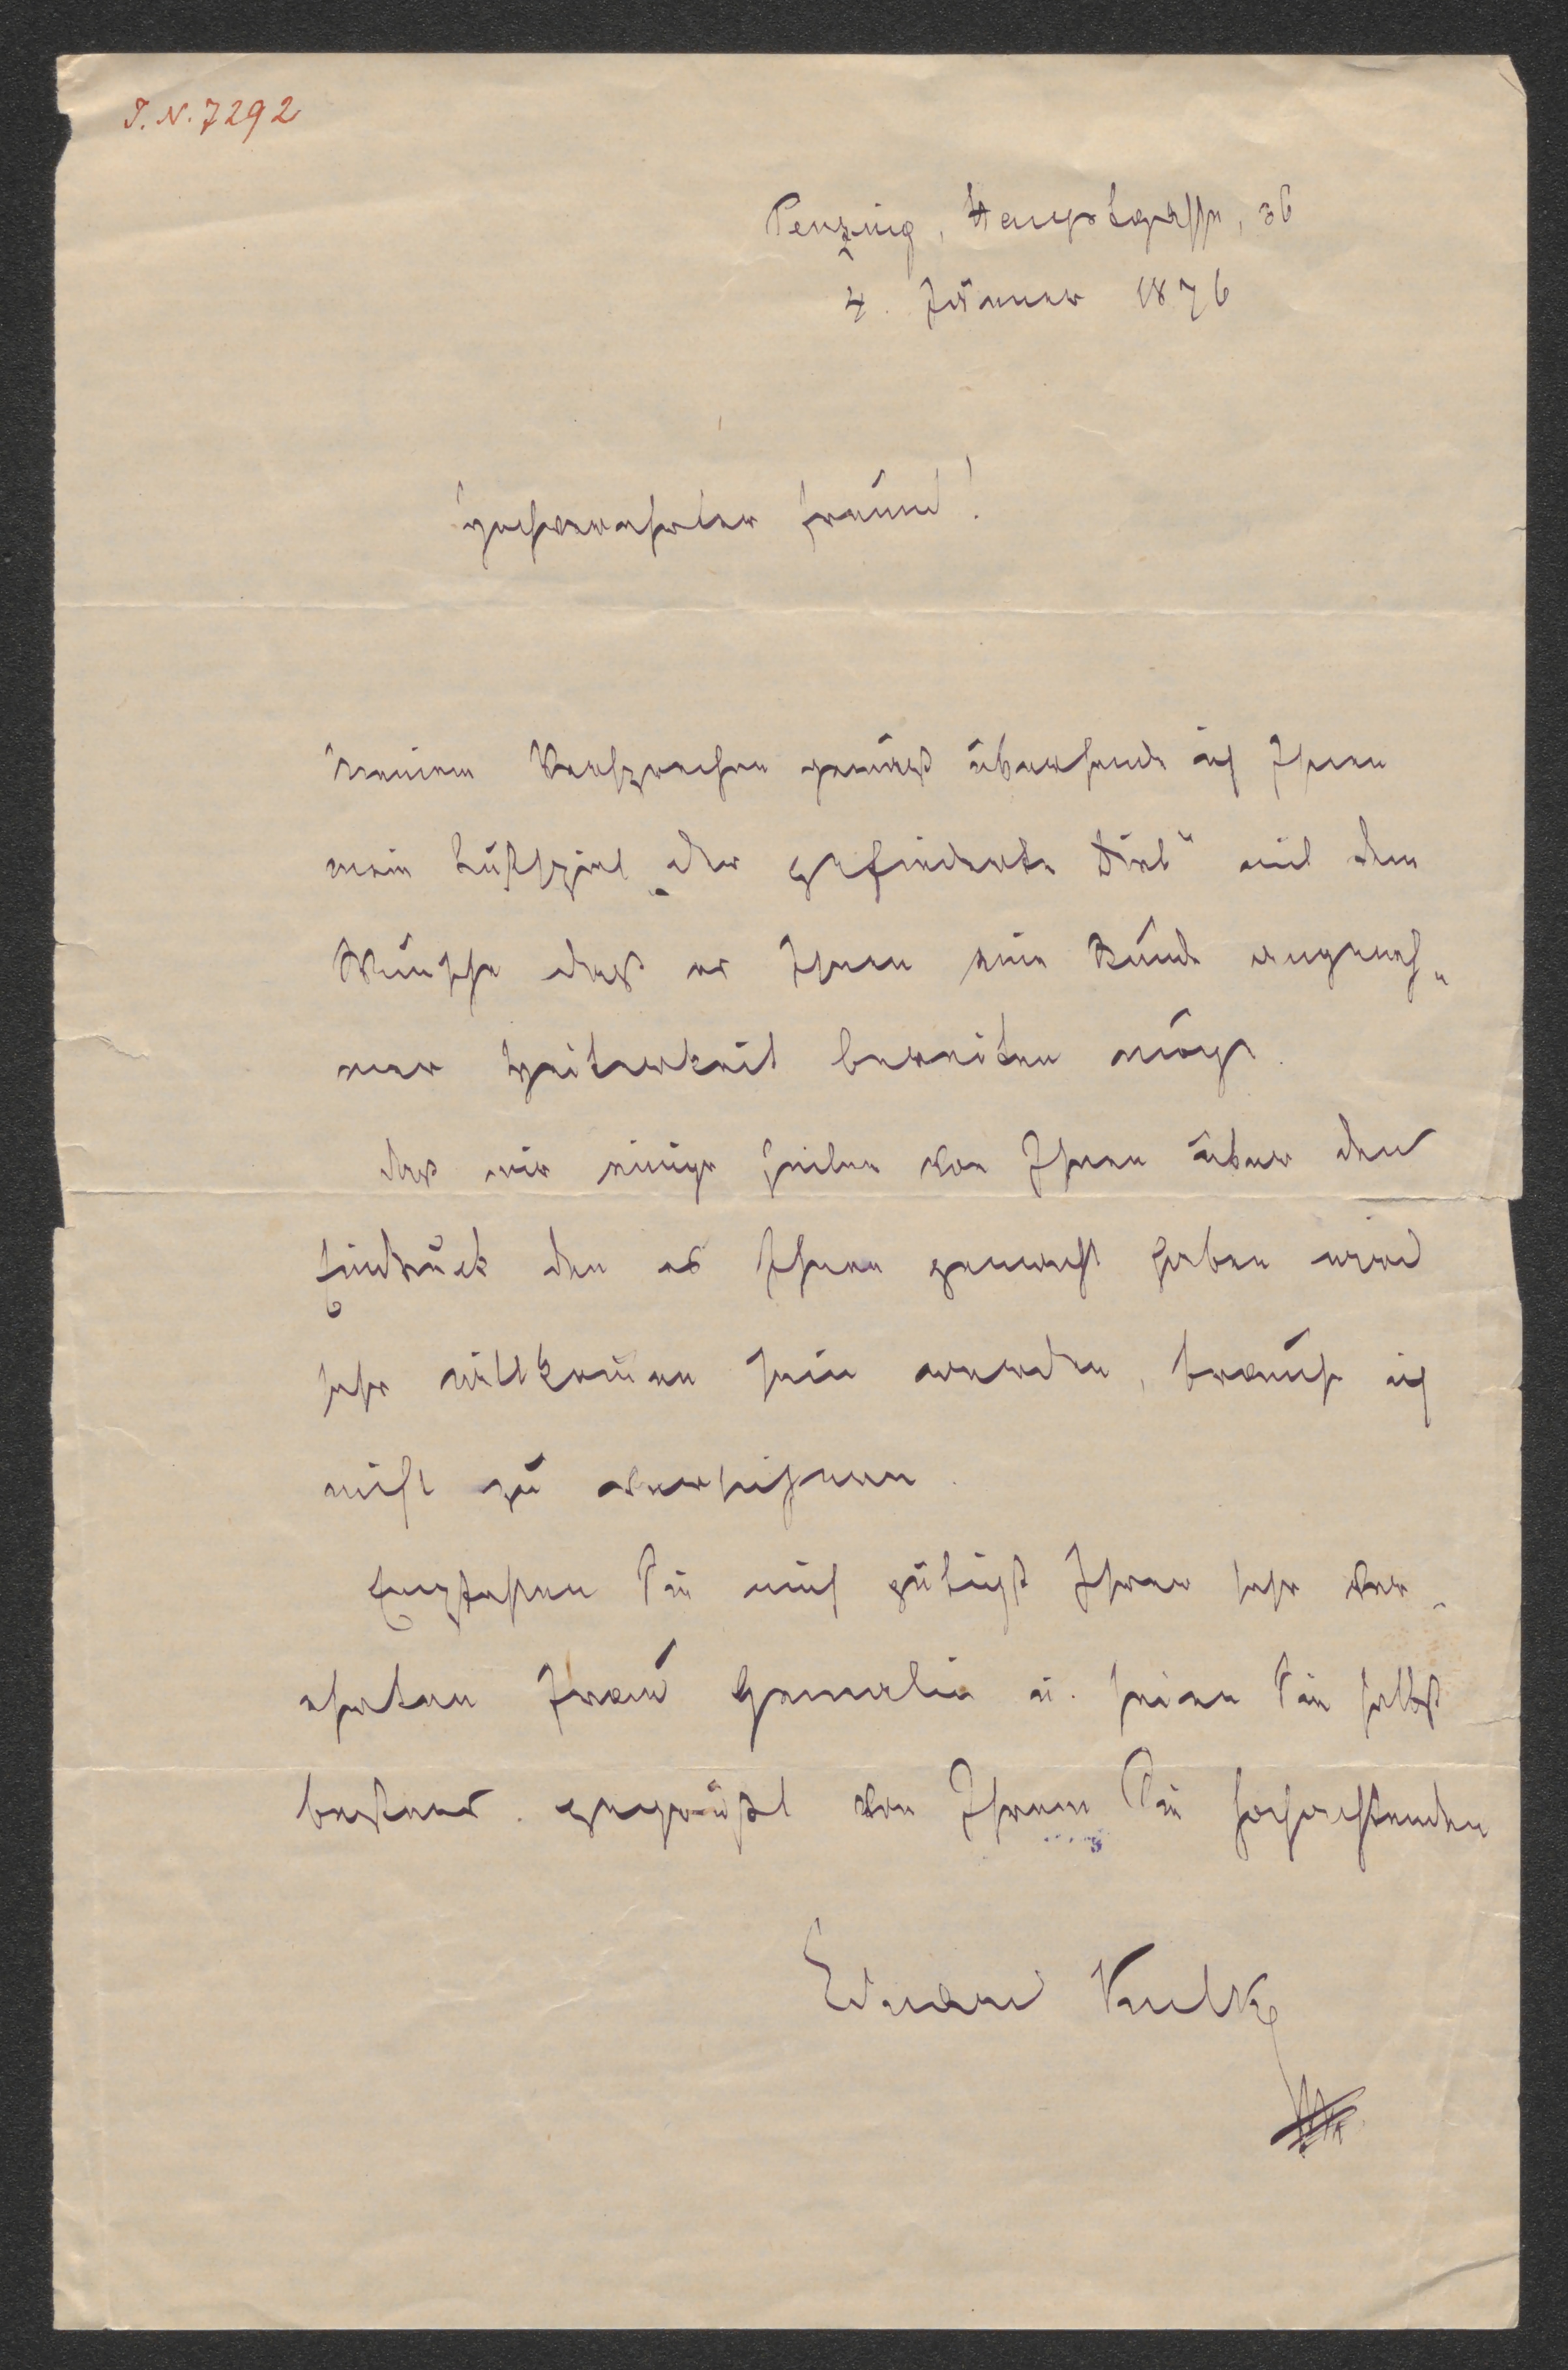 I. N. 7292
Penzing, Hauptgasse, 36
4. Jänner 1876
Hochverehrter Freund!
Meinem Versprechen gemäß übersende ich Ihnen
mein Lustspiel „der gefiederte Dieb“ mit dem
Wunsche daß es Ihnen eine Stunde angeneh„
mer Heiterkeit bereiten möge.
Daß mir einige Zeilen von Ihnen über den
Eindruck den es Ihnen gemacht haben wird
sehr willkommen sein werden, brauche ich
nicht zu versichern.
Empfehlen Sie mich gütigst Ihrer sehr ver„
ehrten Frau Gemalin u. seien Sie selbst
bestens gegrüßt von Ihrem Sie hochachtenden
Eduard Kulke